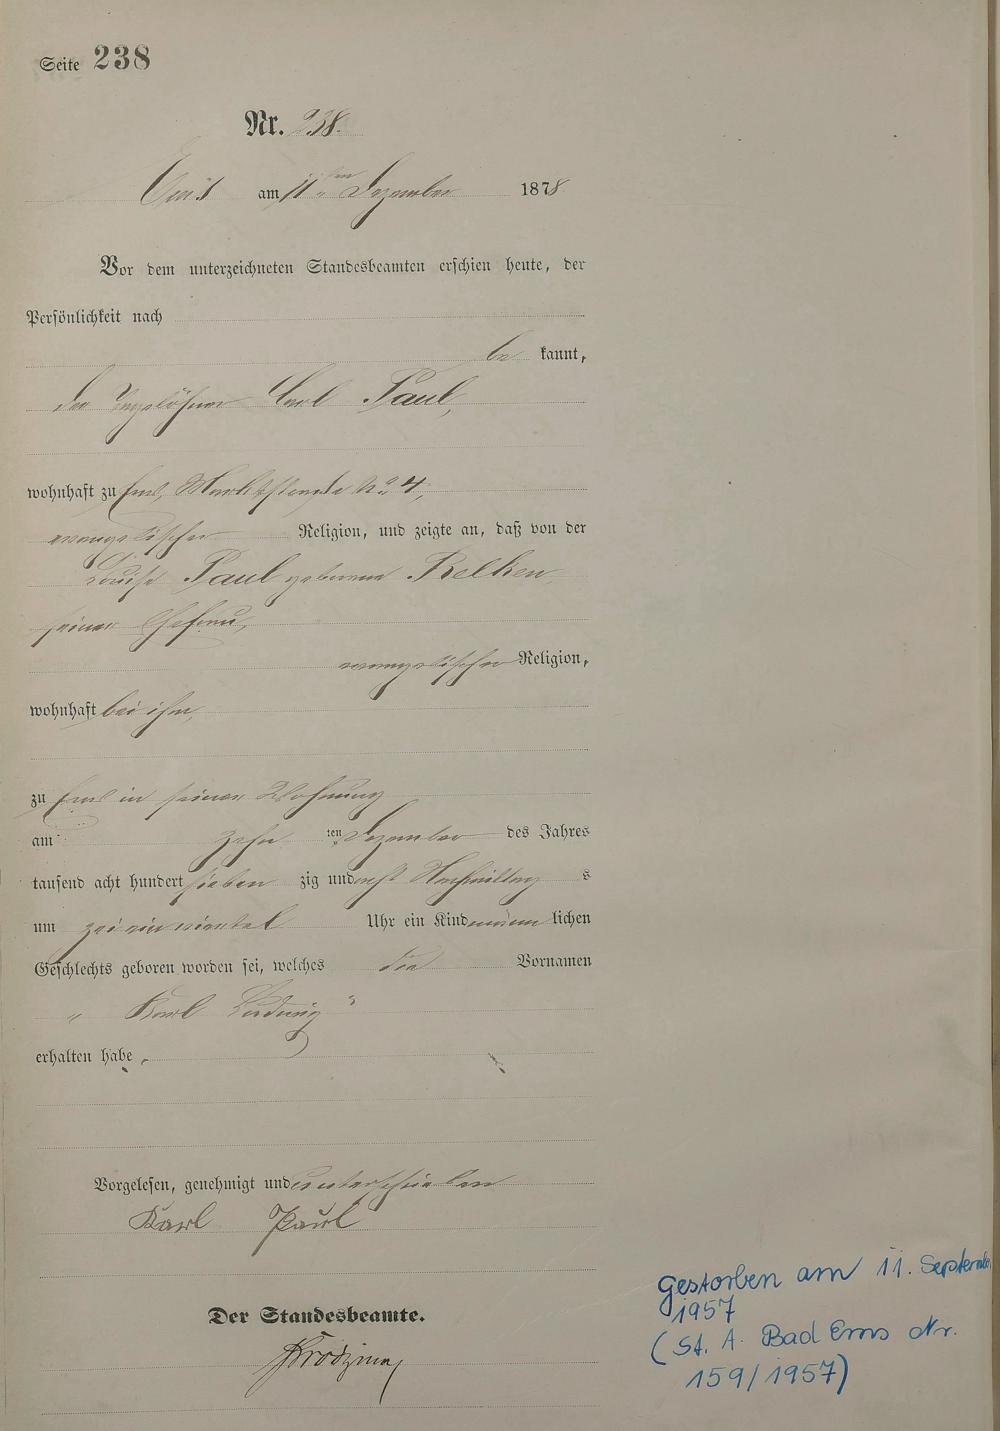 Seite 238
Nr. 238.
Ems am 11ten Dezember 1878
Vor dem unterzeichneten Standesbeamten erschien heute, der
Persönlichkeit nach
be kannt,
der Tagelöhner Carl Paul,
wohnhaft zu Ems, Marktstraße No 4,
evangelischer Religion, und zeigte an, daß von der
Louise Paul geborene Relken
seiner Ehefrau,
evangelischer Religion,
wohnhaft bei ihm,
zu Ems in seiner Wohnung
am zehn ten Dezember des Jahres
tausend acht hundert sieben zig und acht Nachmittag s
um Uhr ein Kind männ lichen
Geschlechts geboren worden sei, welches die Vornamen
„ Karl Ludwig “
erhalten habe.
Vorgelesen, genehmigt und unterschrieben
Karl Paul
Der Standesbeamte.
Gestorben am 11. September
1957
(St. A. Bad Ems Nr.
159/1957)